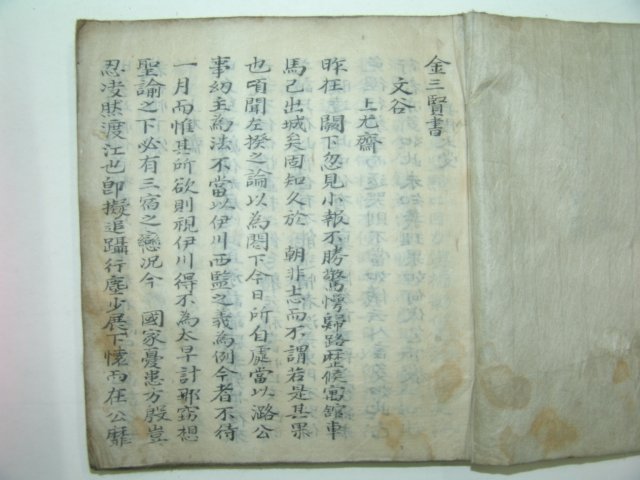 金三賢書
文谷
上尤齋
昨在 闕下忽見小報不勝驚愕歸路歷候寓舘車
馬已出城矣固知久於 朝非志而不謂若是其果
也頃聞左揆之論以為閤下今日所自處當以潞公
事幼主為法不當以伊川西監之義為例今者不待
一月而惟其所欲則視伊川得不為太早計耶竊想
聖諭之下必有三宿之戀況今 國家憂患方殷豈
忍凌然渡江也卽擬追躡行塵少展下懷而在公靡